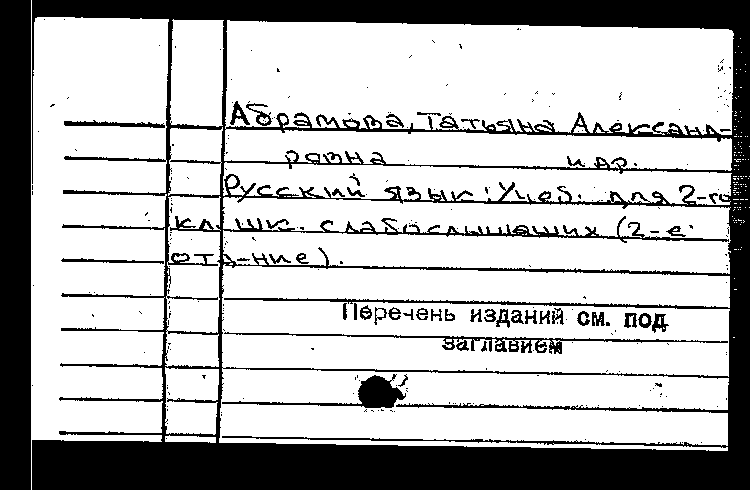 Абрамова, Татьяна Александ-
ровна и др.
Русский язык: Учеб. для 2-го
кл. шк. слабослышащих (2-е
отд-ние).
Перечень изданий см. под
заглавием